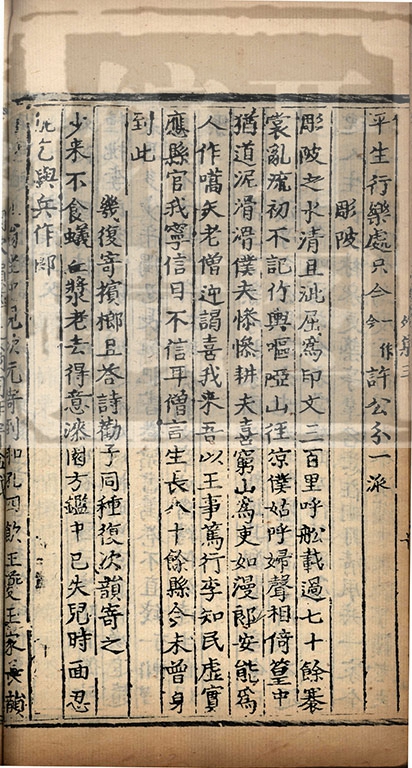 外集三
平生行樂處只今一作今許公分一派
彫陂
彫陂之水清且泚屈為印文三百里呼舩載過七十餘褰
裳亂流初不記竹輿嘔啞山徑涼僕姑呼婦聲相倚篁中
猶道泥滑滑僕夫慘慘耕夫喜窮山為吏如漫郎安能為
人作嚆矢老僧迎謁喜我来吾以王事篤行李知民虛實
應縣官我寧信目不信耳僧言生長八十餘縣令未曾身
到此
幾復寄檳榔且荅詩勸予同種復次韻寄之
少来不食蟻丘漿老去得意漆園方鑑中已失兒時面忍
能乞與兵作郎
次元寄和孔四飲王夔玉家長韻